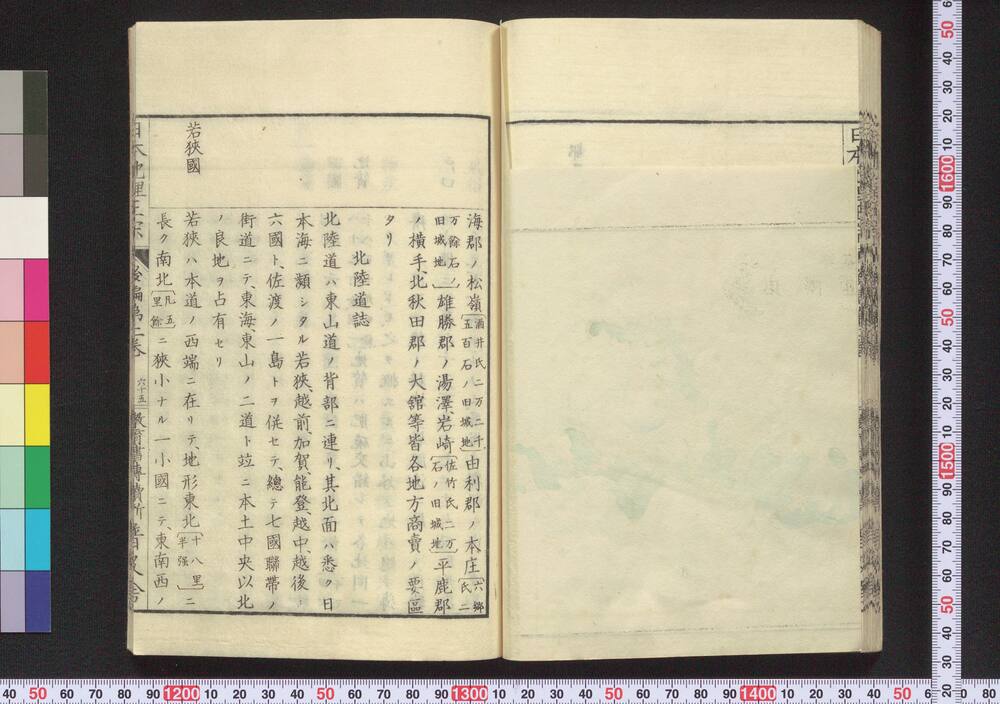 日本
海郡ノ松嶺〔酒井氏二万二千五百石ノ旧城地〕由利郡ノ本庄〔六郷氏二
万餘石ノ旧城地〕雄勝郡ノ湯澤、岩崎〔佐竹氏二万石ノ旧城地〕平鹿郡
ノ横手、北秋田郡ノ大舘等皆各地方商賣ノ要區
タリ
北陸道誌
北陸道ハ東山道ノ背部ニ連リ、其北面ハ悉ク日
本海ニ瀕シタル若狹、越前、加賀、能登、越中、越後ノ
六國ト、佐渡ノ一島トヲ併セテ、總テ七國聯帶ノ
街道ニテ、東海、東山ノ二道ト竝ニ本土中央以北
ノ良地ヲ占有セリ
若狹國
若狹ハ本道ノ西端ニ在リテ、地形東北〔十八里半強〕ニ
長ク南北〔凡五里餘〕ニ狹小ナル一小國ニテ、東南西ノ
日本地理正宗
後編第二卷
六十五